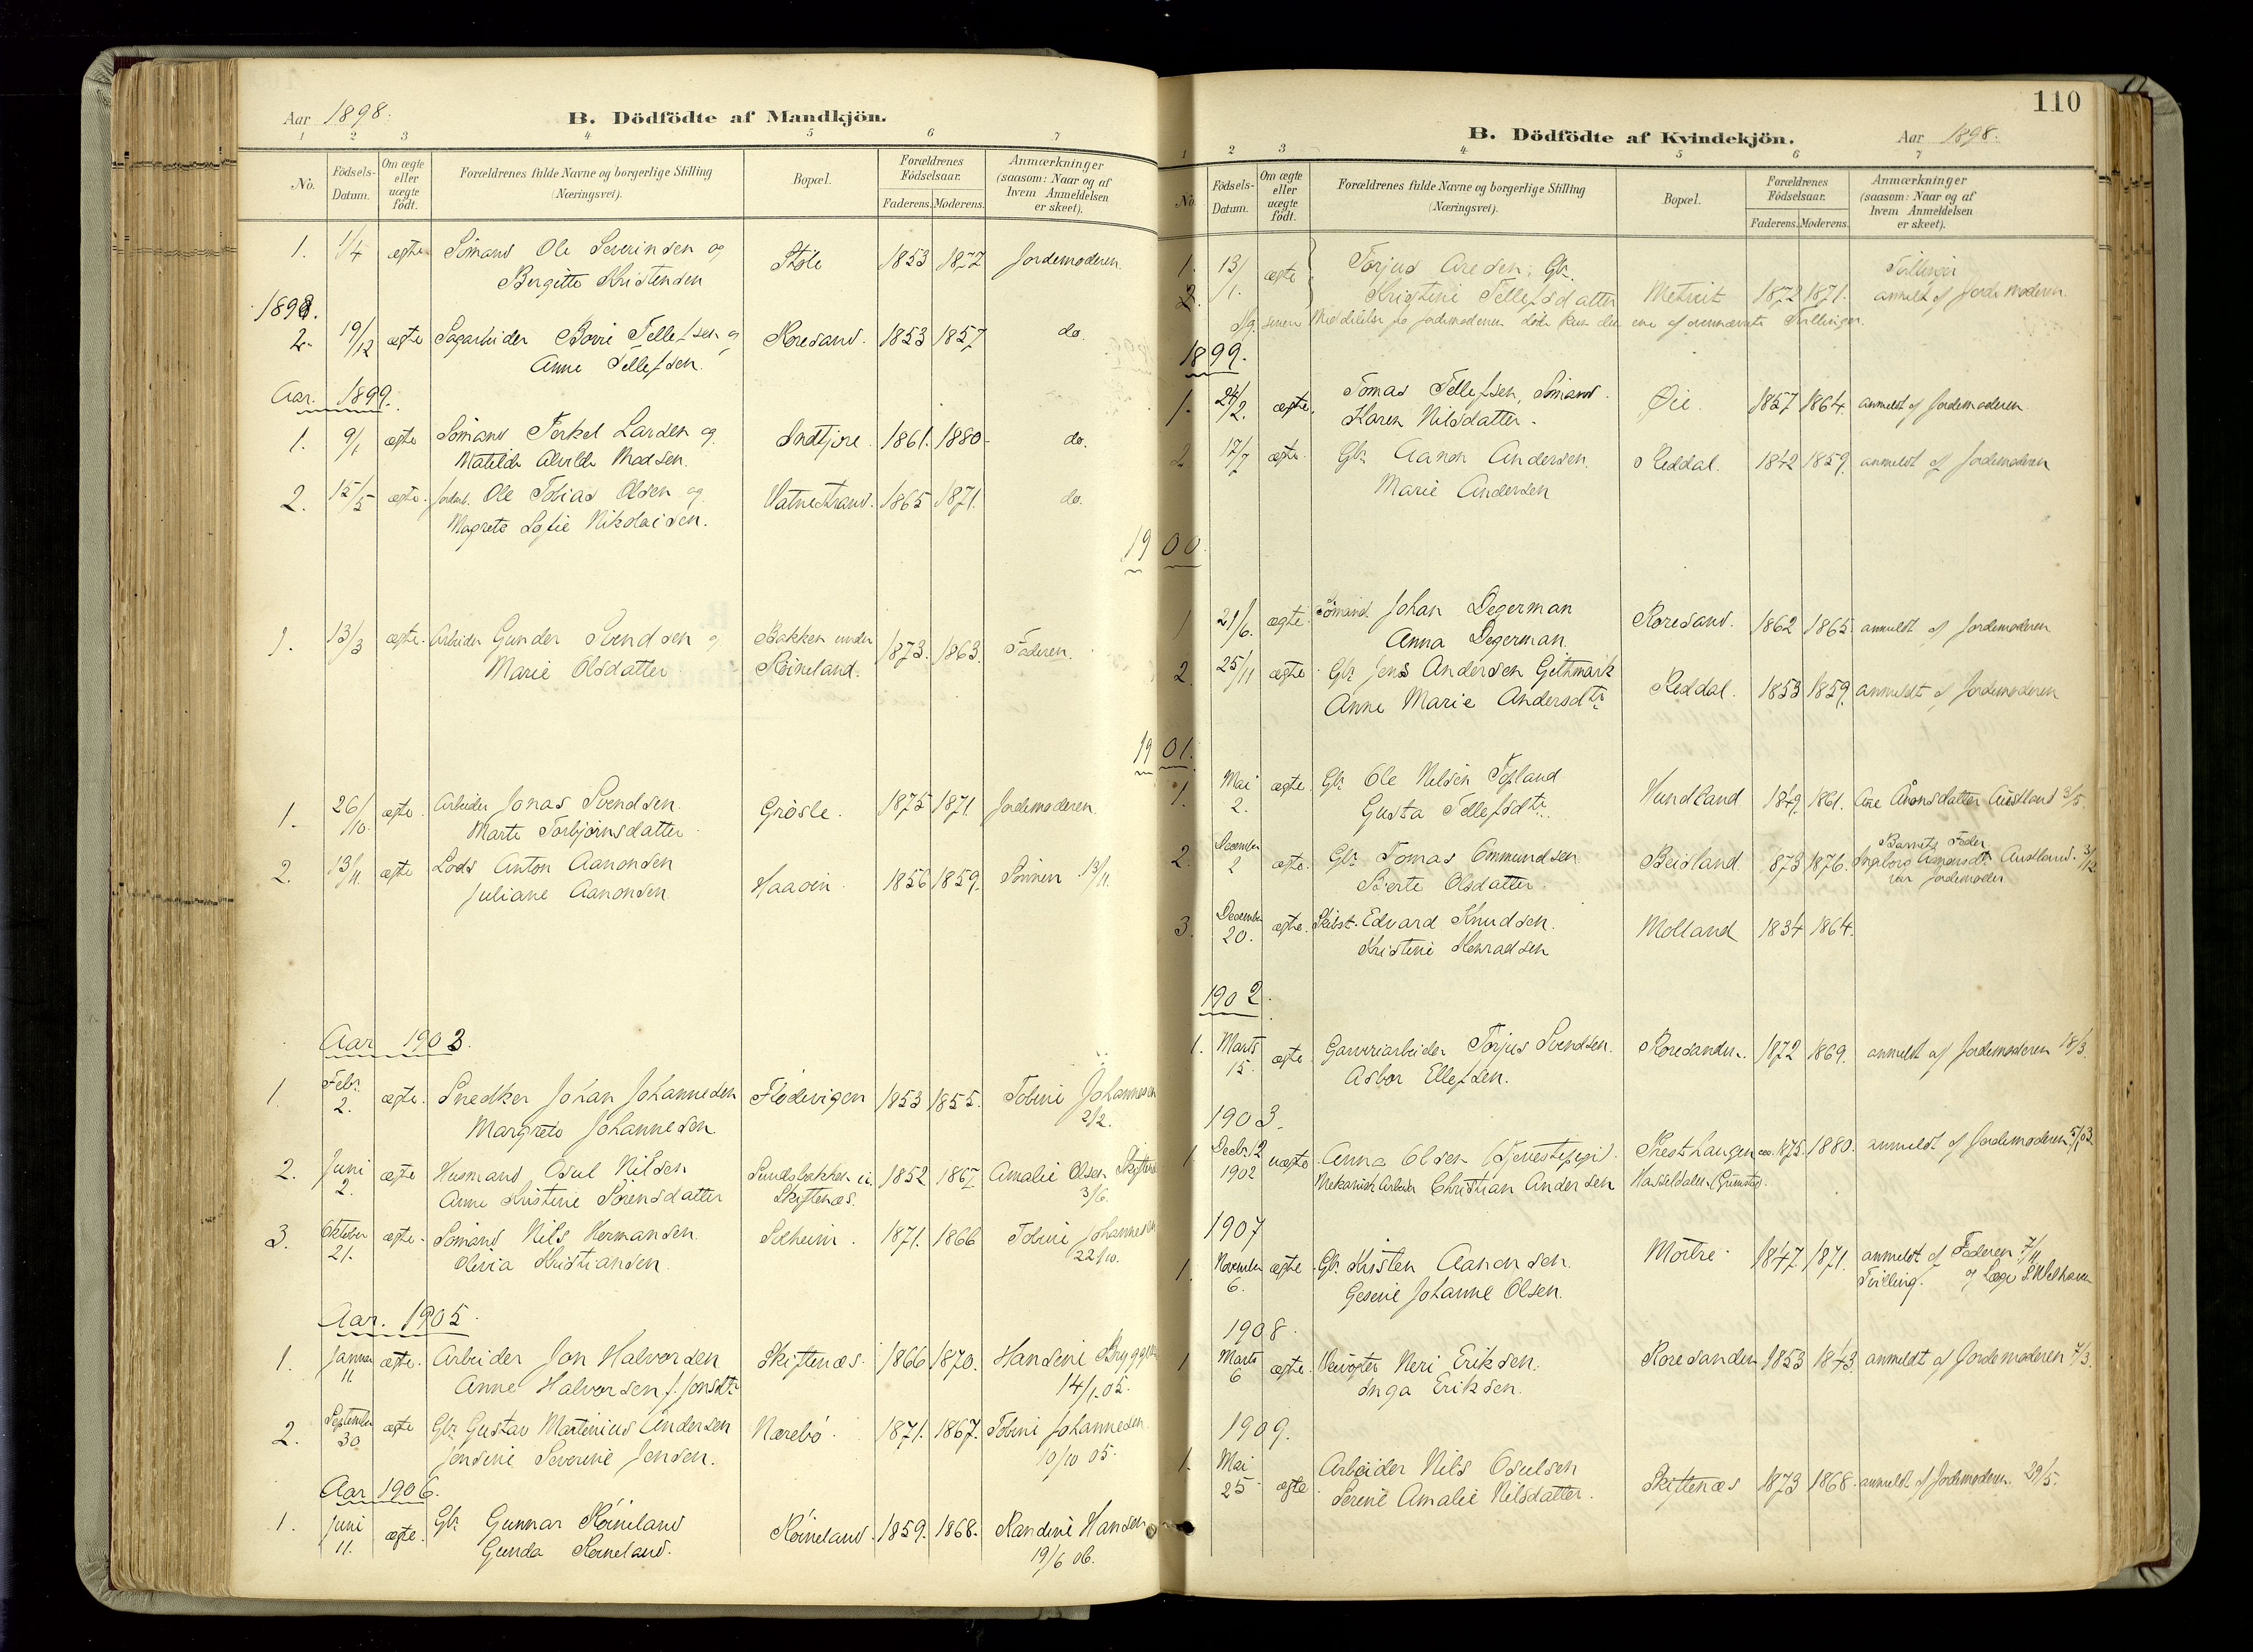 Aar 1898.
B. Dödfödte af Mandkjön.
1 2 3 4 5 6 7
No.
Födsels-Datum.
Om ægte eller uægte födt.
Forældrenes fulde Navne og borgerlige Stilling (Næringsvei).
Bopæl.
Forældrenes Födselsaar.
Faderens. Moderens.
Anmærkninger (saasom: Naar og af hvem Anmeldelsen er skeet).
1. 1/4 ægte Sömand Ole Severinsen og Støle 1853 1872 Jordemoderen.
Bergitte Kristensen
1898.
2. 19/12 ægte Sagarbeider Tellefsen og Roresand. 1853 1857 do.
Anne Tellefsen.
Aar. 1899.
1. 9/1 ægte Sömand Terkel Larsen og 1861. 1880 do.
Matilde Alvilde Madsen.
2. 15/5 ægte. Ole Tobias Olsen og Vatnestrand. 1865 1871. do.
Magrete Sofie Nikolaisen.
1. 13/3 ægte. Arbeider Gunder Svendsen og Bakken under 1873. 1863. Faderen.
Marie Olsdatter Röineland.
1. 26/10. ægte Arbeider Jonas Svendsen. Grösle. 1875 1871 Jordemoderen.
Marte Torbjörnsdatter.
2. 13/11. ægte Lods Anton Aanonsen Haaöen. 1856 1859. 13/11.
Juliane Aanonsen.
Aar 1903.
1. Febr. 2. ægte. Snedker Johan Johannesen Flödevigen 1853 1855. Tobine Johannesen
Margrete Johannesen 2/2.
2. Juni 2. ægte Husmand Osul Nilsen Sundsbakken u. 1852 1867 Amalie Olsen
Anne Kristine Sörensdatter Skiftenæs. 3/6.
3. Oktober 21. ægte. Sömand Nils Hermansen. Solheim. 1871. 1866 Tobine Johannesen
Olivia Kristiansen. 22/10.
Aar. 1905.
1. Januar 11 ægte. Arbeider Jon Halvorsen Skiftenæs. 1866 1870. Hansine
Anne Halvorsen f. Jonsdtr 14/1.05.
2. September 30 ægte Gbr. Gustav Martinius Andersen Nærebö. 1871. 1867. Tobine Johannesen
Jensine Severine Jensen. 10/10 05.
Aar 1906.
1. Juni 11. ægte. Gbr. Gunnar Röineland Röineland. 1859. 1868. Randine Hansen
Gunda Röineland. 19/6 06.
110
B. Dödfödte af Kvindekjön.
Aar 1898.
1 2 3 4 5 6 7
No.
Födsels-Datum.
Om ægte eller uægte födt.
Forældrenes fulde Navne og borgerlige Stilling (Næringsvei).
Bopæl.
Forældrenes Födselsaar.
Faderens. Moderens.
Anmærkninger (saasom: Naar og af hvem Anmeldelsen er skeet).
1. 13/1. ægte Torjus Aresen. Gbr. Tvillinger
2. Kristine Tellefsdatter 1872 1871. anmeldt af Jordemoderen.
senere Meddelelse fra Jordemoderen döde kun den ene af Tvillinger.
1899.
1. 24/2. ægte. Tomas Tellefsen, Sömand. Øie. 1857 1864. anmeldt af Jordemoderen.
Karen Nilsdatter.
2 17/7 ægte. Gbr. Aanon Andersen. Reddal. 1842 1859. anmeldt af Jordemoderen
Marie Andersen
1900.
1 21/6. ægte. Sömand. Johan Degerman Roresand. 1862 1865 anmeldt af Jordemoderen
Anna Degerman.
2. 25/11 ægte. Gbr. Jens Andersen Gethmark Reddal. 1853 1859. anmeldt af Jordemoderen
Anne Marie Andersdtr.
1901.
1. Mai 2. ægte. Gbr. Ole Nilsen Fosland Hundland 1849. 1861. Ane Aanonsdatter Austland 3/5.
Gusta Tellefsdtr.
2. December 2 ægte. Gbr. Tomas Ommundsen Beisland. 873 1876. Barnets Fader
Berte Olsdatter. Ingeborg Austland. 3/12
var Jordemoder
3. December 20. ægte. Skibst. Edvard Knudsen. Molland 1834 1864.
Kristine Konradsen
1902.
1. Marts 15. ægte. Garveriarbeider Torjus Svendsen. Roresanden. 1872 1869. anmeldt af Jordemoderen 18/3.
Asbor Ellefsen.
1903.
1 Decbr. 12 1902 uægte. Anna Olsen (Tjenestepige). 1875. 1880. anmeldt af Jordemoderen
Mekanisk Arbeider Christian Andersen Hasseldalen (Grimstad).
1907
1. November 6. ægte. Gbr. Kristen Aanonsen. Moltre. 1847 1871. anmeldt af Faderen 7/11
Gesine Johanne Olsen. Tvilling. og Læge
1908.
1 Marts 6 ægte. Neri Eriksen. Roresanden 1853 1843. anmeldt af Jordemoderen 7/3.
Inga Eriksen.
1909.
1. Mai 25 ægte. Arbeider Nils Osulsen Skiftenæs 1873 1868. anmeldt af Jordemoderen. 29/5.
Serene Amalie Nilsdatter.